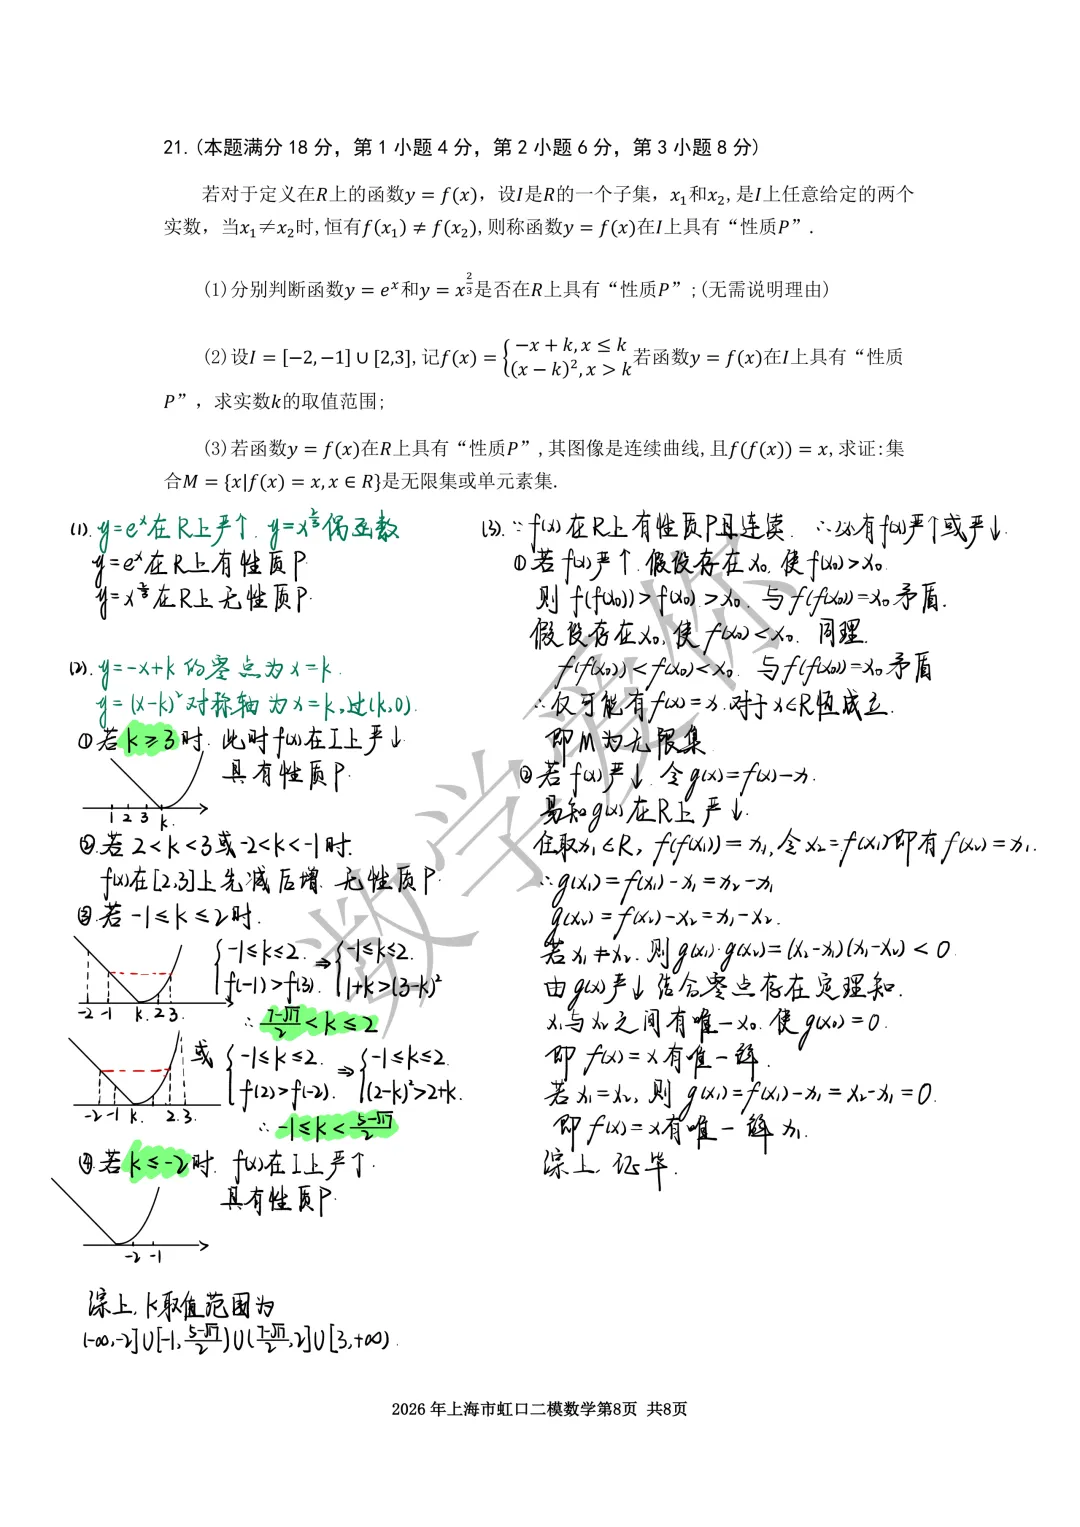 21.(本题满分 18 分，第 1 小题 4 分，第 2 小题 6 分，第 3 小题 8 分)
若对于定义在R上的函数y = f(x)，设I是R的一个子集，x₁和x₂,是I上任意给定的两个
实数，当x₁≠x₂时,恒有f(x₁) ≠ f(x₂),则称函数y = f(x)在I上具有“性质P”.
(1)分别判断函数y = eˣ和y = x^(2/3)是否在R上具有“性质P”;(无需说明理由)
(2)设I = [−2,−1] ∪ [2,3],记f(x) = {−x + k, x ≤ k
(x − k)², x > k 若函数y = f(x)在I上具有“性质
P”，求实数k的取值范围;
(3)若函数y = f(x)在R上具有“性质P”,其图像是连续曲线,且f(f(x)) = x,求证:集
合M = {x|f(x) = x, x ∈ R}是无限集或单元素集.
(1). y=eˣ在R上严↑. y=x^(2/3)偶函数
y=eˣ在R上有性质P
y=x^(2/3)在R上无性质P.
(2). y=-x+k的零点为x=k.
y=(x-k)²对称轴为x=k,过(k,0).
①若k≥3时. 此时f(x)在I上严↓
具有性质P.
1 2 3 k.
②若2<k<3或-2<k<-1时.
f(x)在[2,3]上先减后增. 无性质P.
③若-1≤k≤2时.
{-1≤k≤2. ⇒ {-1≤k≤2.
f(-1)>f(3). 1+k>(3-k)²
-2 -1 k. 2 3.
∴ (7-√17)/2<k≤2
或 {-1≤k≤2. ⇒ {-1≤k≤2.
f(2)>f(-2). (2-k)²>2+k.
-2 -1 k. 2. 3.
∴ -1≤k<(5-√17)/2
④若k≤-2时. f(x)在I上严↑.
具有性质P.
-2 -1
综上, k取值范围为
(-∞,-2]∪[-1,(5-√17)/2)∪((7-√17)/2,2]∪[3,+∞).
(3). ∵f(x)在R上有性质P且连续. ∴必有f(x)严↑或严↓.
①若f(x)严↑. 假设存在x₀. 使f(x₀)>x₀.
则f(f(x₀))>f(x₀)>x₀. 与f(f(x₀))=x₀矛盾.
假设存在x₀,使f(x₀)<x₀. 同理.
f(f(x₀))<f(x₀)<x₀. 与f(f(x₀))=x₀矛盾
∴仅可能有f(x)=x.对于x∈R恒成立.
即M为无限集.
②若f(x)严↓. 令g(x)=f(x)-x.
易知g(x)在R上严↓.
任取x₁∈R, f(f(x₁))=x₁,令x₂=f(x₁)即有f(x₂)=x₁.
∴g(x₁)=f(x₁)-x₁=x₂-x₁
g(x₂)=f(x₂)-x₂=x₁-x₂.
若x₁≠x₂. 则g(x₁)·g(x₂)=(x₂-x₁)(x₁-x₂)<0.
由g(x)严↓结合零点存在定理知.
x₁与x₂之间有唯一x₀. 使g(x₀)=0.
即f(x)=x有唯一解.
若x₁=x₂, 则g(x₁)=f(x₁)-x₁=x₂-x₁=0.
即f(x)=x有唯一解x₁.
综上, 证毕.
数学爱你
2026 年上海市虹口二模数学第8页 共8页